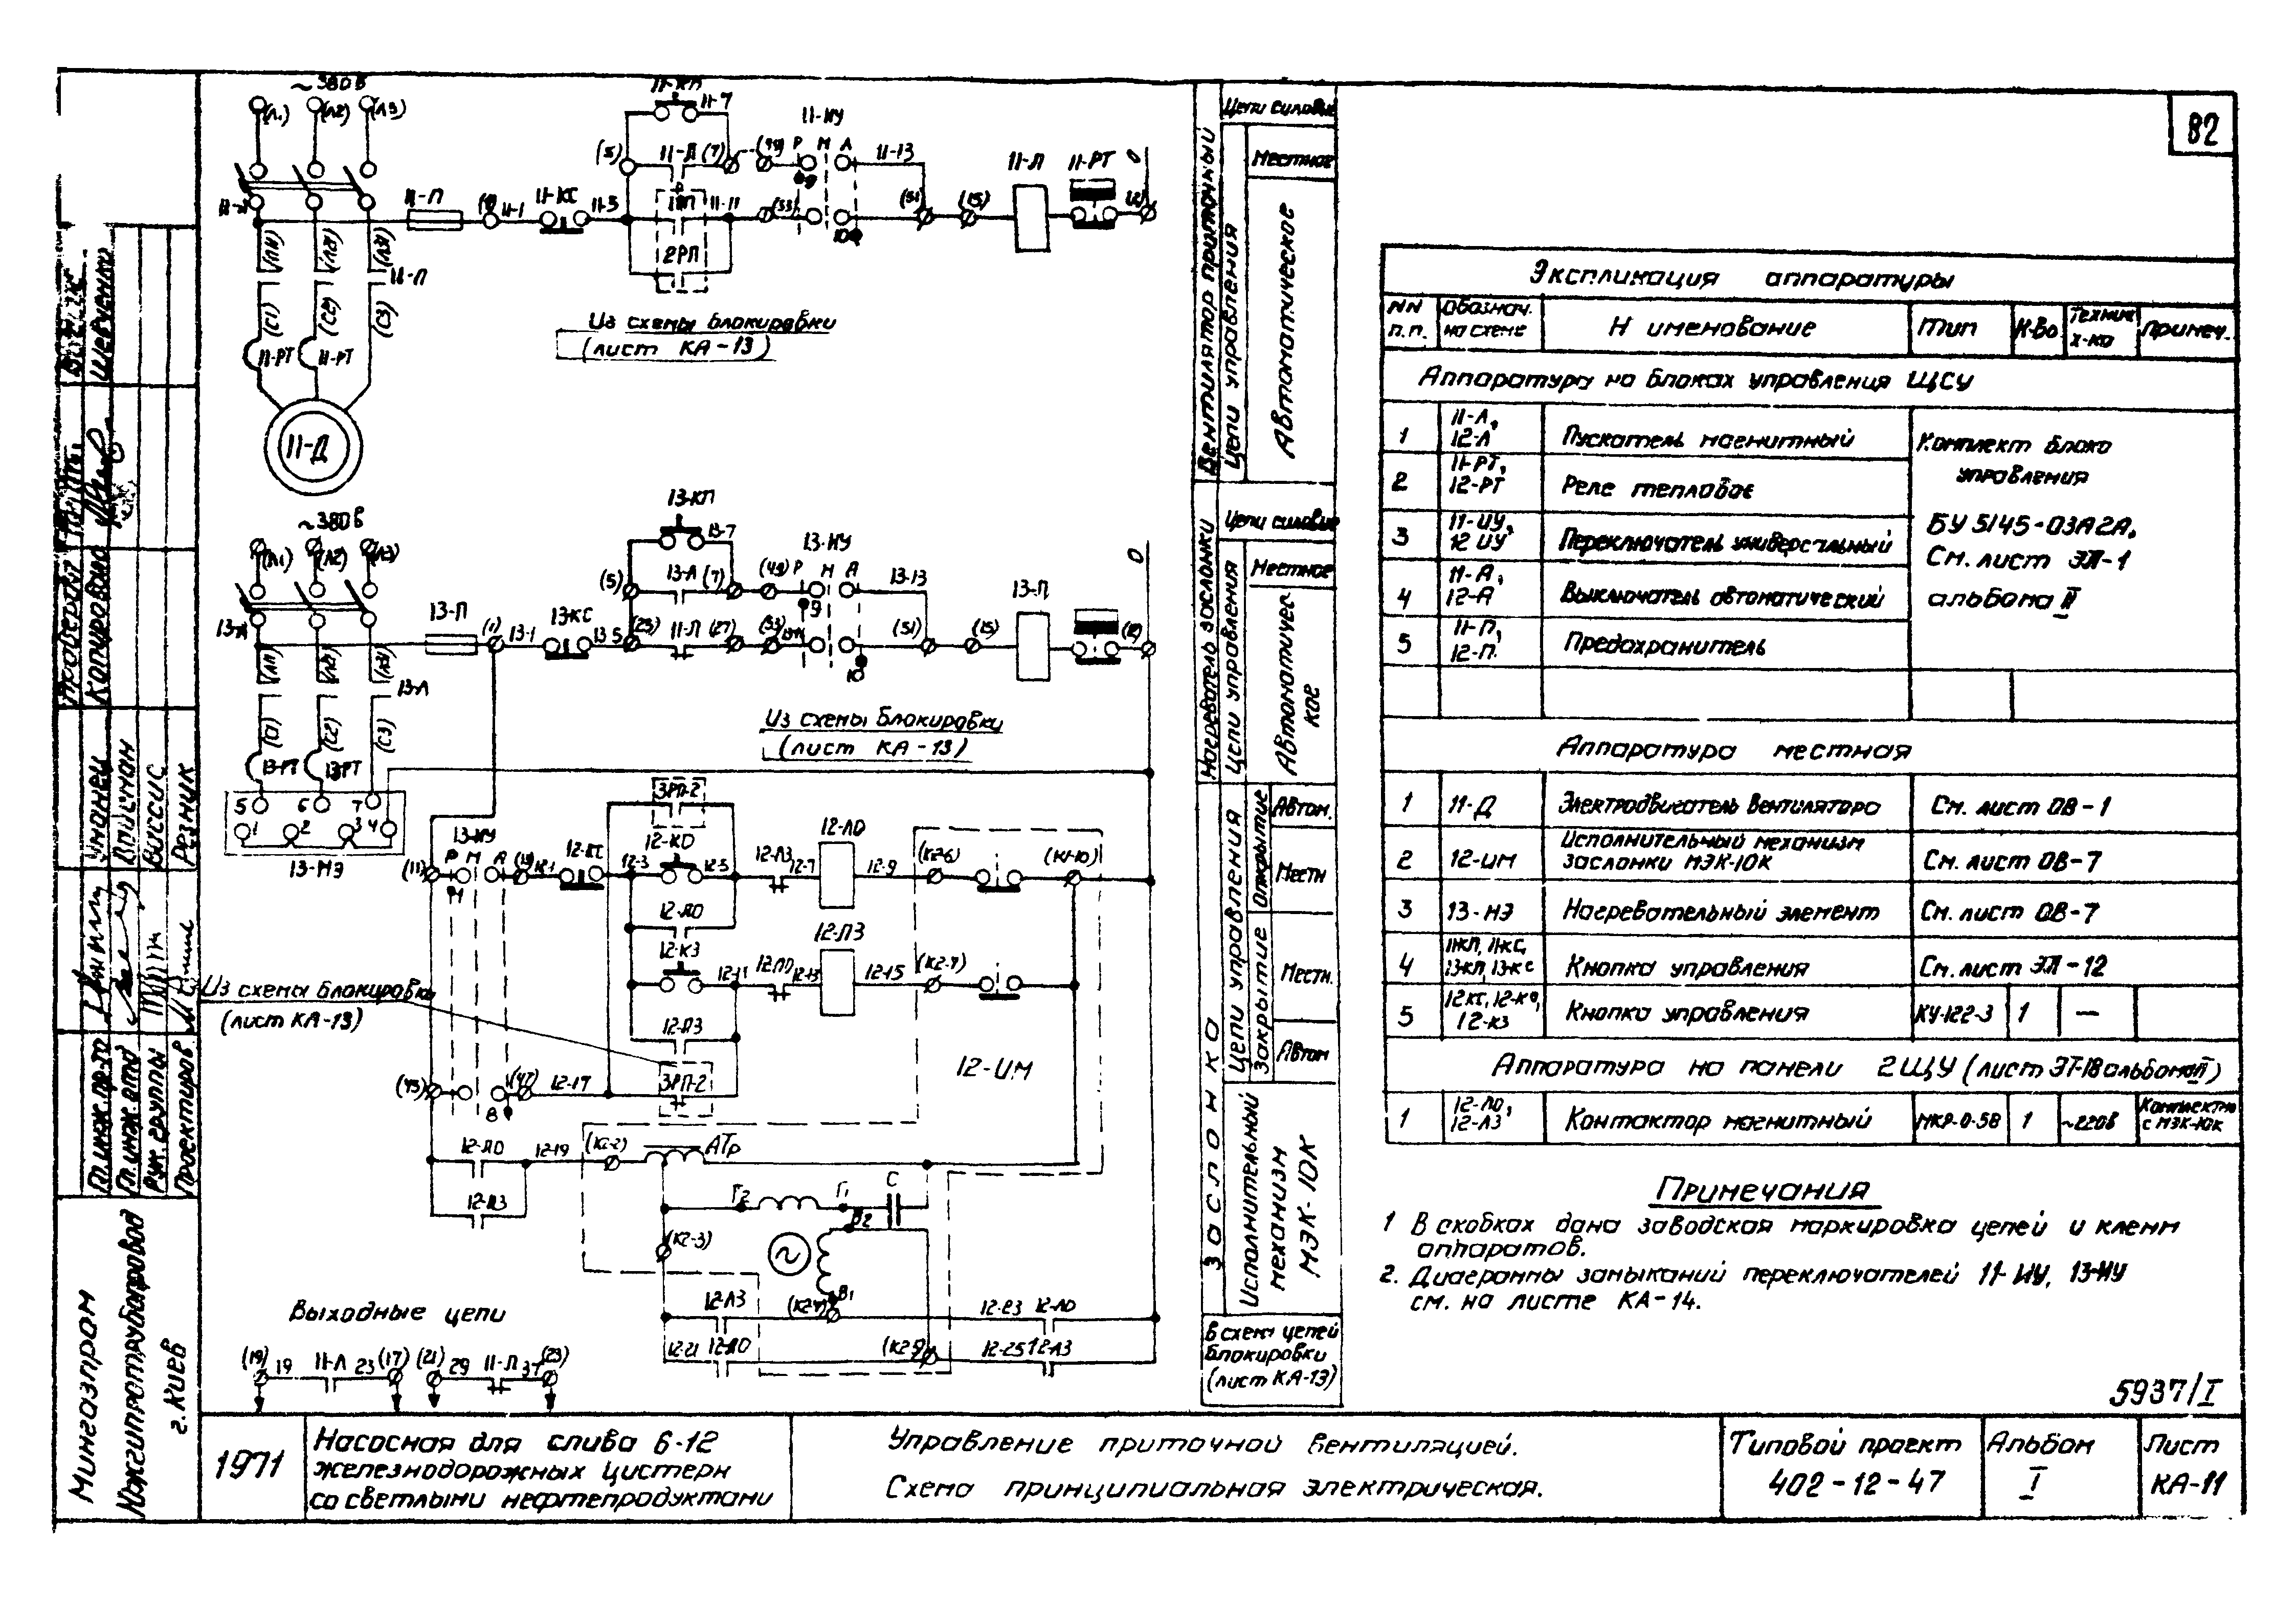 82
~380В
(Л1) (Л2) (Л3)
11-П
(1)
11-1
11-КС
11-5
11-КП
11-7
(5)
11-Л (7)
(49) Р М А
11-ИУ
11-13
9
1РП
11-11
(53)
10
(51)
(15)
11-Л
11-РТ
0
(12)
2РП
(С1) (С2) (С3)
11-Л
11-РТ 11-РТ
11-Д
Из схемы блокировки
(лист КА-13)
~380В
(Л1) (Л2) (Л3)
13-А
13-П
(1)
13-1
13-КС
13-5
13-КП
13-7
(5)
13-Л (7)
(49) Р М А
13-ИУ
13-13
9
(25)
11-Л (27)
(53)
10
(51)
(15)
13-Л
0
(12)
13-Л
(С1) (С2) (С3)
13-РТ 13-РТ
5 6 7
1 2 3 4
13-НЭ
Из схемы блокировки
(лист КА-13)
13-ИУ
Р М А
(11)
12-1
12-КС
12-3
3РП-2
12-КО
12-5
12-ЛЗ
12-7
12-ЛО
12-9
(К2-6)
(К1-10)
12-ЛО
12-КЗ
12-11
12-ЛО
12-13
12-ЛЗ
12-15
(К2-7)
12-ЛЗ
3РП-2
12-17
(45)
(47)
8
12-ИМ
Из схемы блокировки
(лист КА-13)
12-ЛО
12-19
(К2-2)
АТр
12-ЛЗ
Г2
Г1
С
В2
В1
(К2-3)
12-ЛЗ
(К2-4)
12-23 12-ЛО
12-21 12-ЛО
(К2-5)
12-25 12-ЛЗ
Выходные цепи
(19) 19 11-Л 23 (17)
(21) 29 11-Л 37 (23)
Вентилятор приточный
Цепи силовые
Цепи управления
Местное
Автоматическое
Нагреватель заслонки
Цепи силовые
Цепи управления
Местное
Автоматичес
кое
Заслонка
Цепи управления
Открытие
Автом.
Местн
Закрытие
Местн.
Автом
Исполнительный
механизм
МЭК-10К
В схему цепей
блокировки
(лист КА-13)
Экспликация аппаратуры
NN п.п.
Обознач. на схеме
Н именование
Тип
К-во
Технич х-ка
Примеч.
Аппаратура на блоках управления ЩСУ
1 11-Л, 12-Л Пускатель магнитный
2 11-РТ, 12-РТ Реле тепловое
3 11-ИУ, 12 ИУ Переключатель универсальный
4 11-А, 12-А Выключатель автоматический
5 11-П, 12-П. Предохранитель
Комплект блока
управления
БУ 5145-03А2А.
См. лист ЭЛ-1
альбома II
Аппаратура местная
1 11-Д Электродвигатель вентилятора См. лист ОВ-1
2 12-ИМ Исполнительный механизм заслонки МЭК-10К См. лист ОВ-7
3 13-НЭ Нагревательный элемент См. лист ОВ-7
4 11КП, 11КС, 13-КП, 13-КС Кнопка управления См. лист ЭЛ-12
5 12КС, 12-КО, 12-КЗ Кнопка управления КУ-122-3 1 —
Аппаратура на панели 2ЩУ (лист ЭТ-18 альбома II)
1 12-ЛО, 12-ЛЗ Контактор магнитный МКР-0-58 1 ~220В Комплектно с МЭК-10К
Примечания
1 В скобках дана заводская маркировка цепей и клемм
аппаратов.
2. Диаграммы замыканий переключателей 11-ИУ, 13-ИУ
см. на листе КА-14.
5937/I
Мингазпром
Южгипротрубопровод
г. Киев
Гл. инж. пр-та Уманец
Гл. инж. отд Длисман
Рук. группы Виссис
Проектиров. Резник
Проверил
Копировала Шевченко
1971
Насосная для слива 6-12
железнодорожных цистерн
со светлыми нефтепродуктами
Управление приточной вентиляцией.
Схема принципиальная электрическая.
Типовой проект
402-12-47
Альбом
I
Лист
КА-11